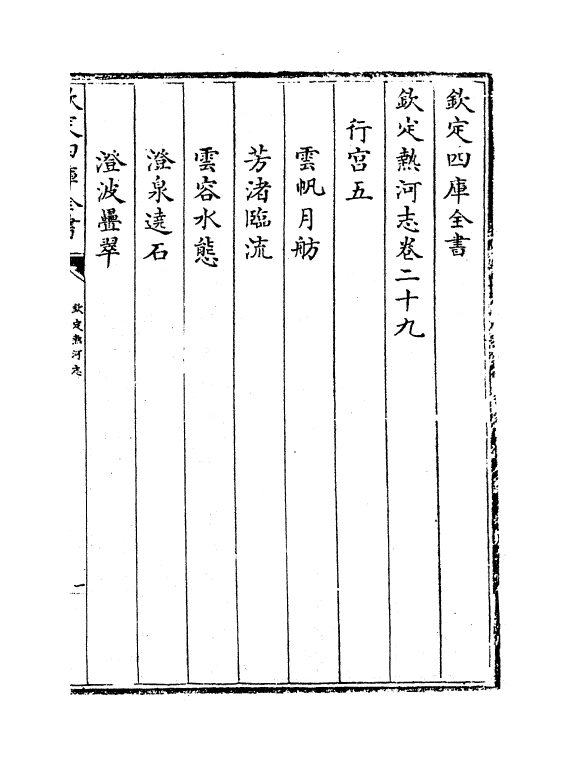 欽定四庫全書
欽定熱河志卷二十九
行宫五
雲帆月舫
芳渚臨流
雲容水態
澄泉遶石
澄波疊翠
欽定四庫全書
欽定熱河志
一